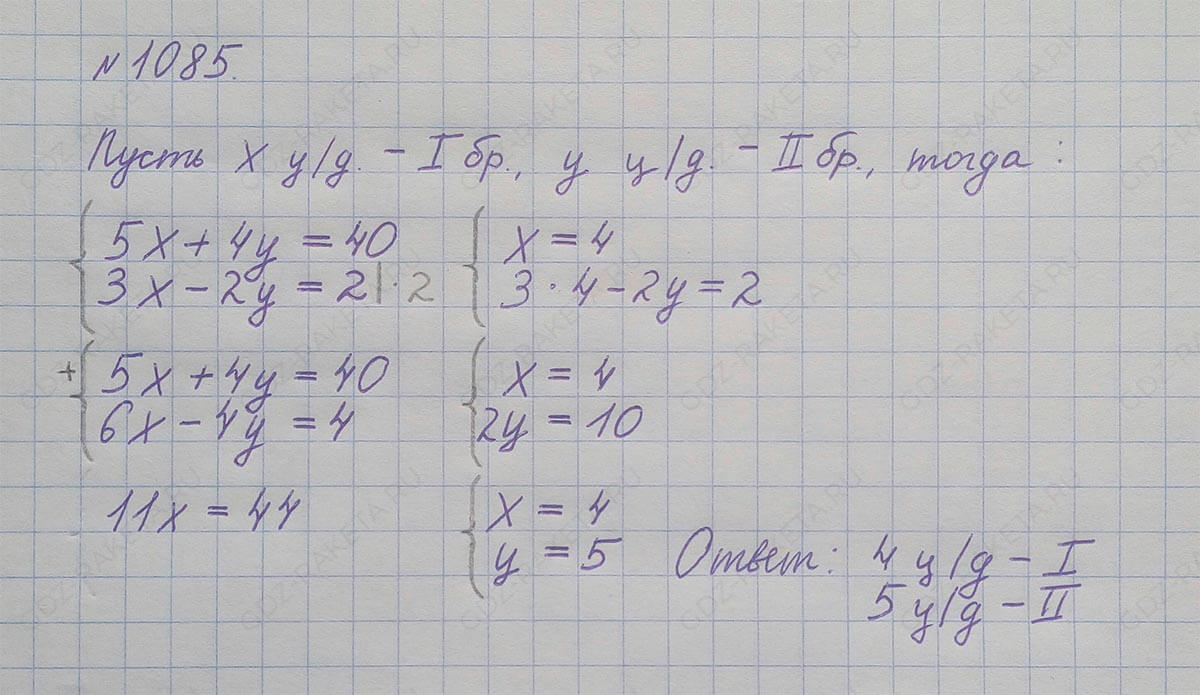 №1085.
Пусть x ц/д. – I бр., y ц/д. – II бр., тогда:
5x + 4y = 40
3x – 2y = 2 |·2
+ 5x + 4y = 40
6x – 4y = 4
11x = 44
x = 4
3·4 – 2y = 2
x = 4
2y = 10
x = 4
y = 5
Ответ: 4 ц/д – I
5 ц/д – II
GDZ-RAKETA.RU